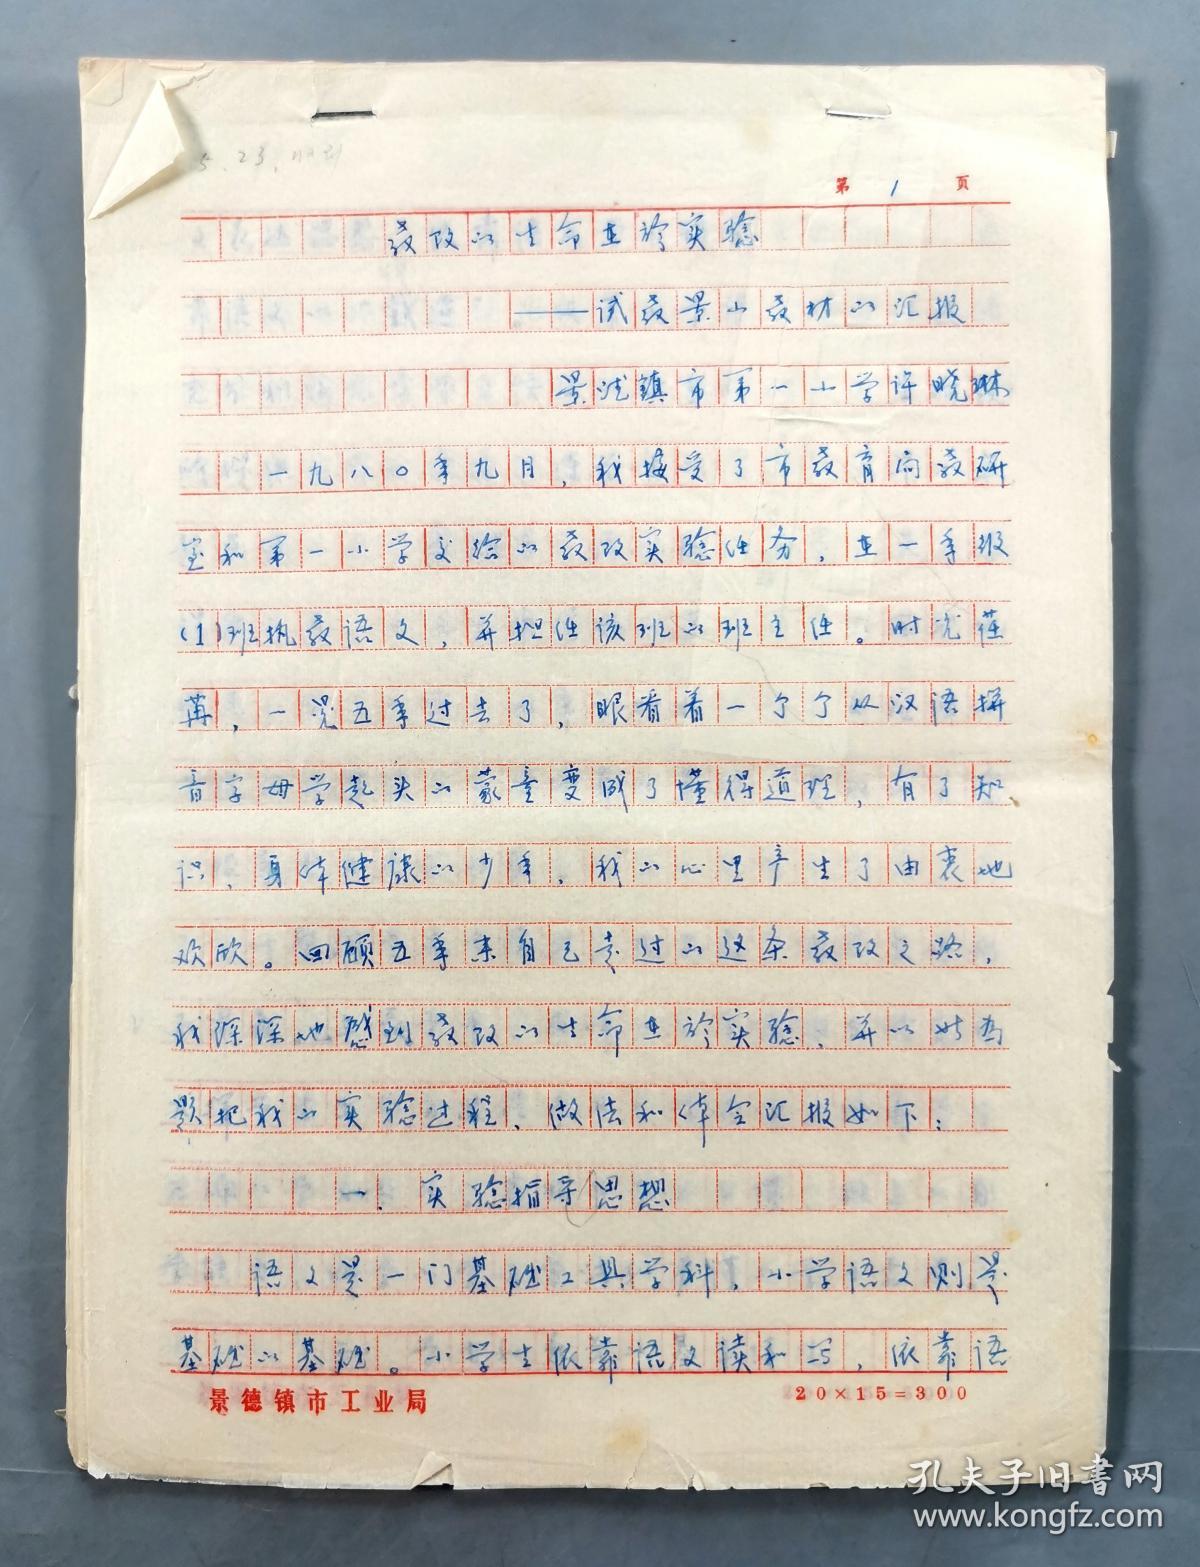 5.23.
第 1 页
教改的生命在于实验
——试教景山教材的汇报
景德镇市第一小学许晓琳
一九八〇年九月，我接受了市教育局教研
室和第一小学交给的教改实验任务，在一年级
(1)班执教语文，并担任该班的班主任。时光荏
苒，一晃五年过去了，眼看着一个个从汉语拼
音字母学起头的蒙童变成了懂得道理，有了知
识、身体健康的少年，我的心里产生了由衷地
欢欣。回顾五年来自己走过的这条教改之路，
我深深地感到教改的生命在于实验，并以此为
题把我的实验过程、做法和体会汇报如下：
一、实验指导思想
语文是一门基础工具学科，小学语文则是
基础的基础。小学生依靠语文读和写，依靠语
景德镇市工业局
20×15=300
孔夫子旧书网
www.kongfz.com